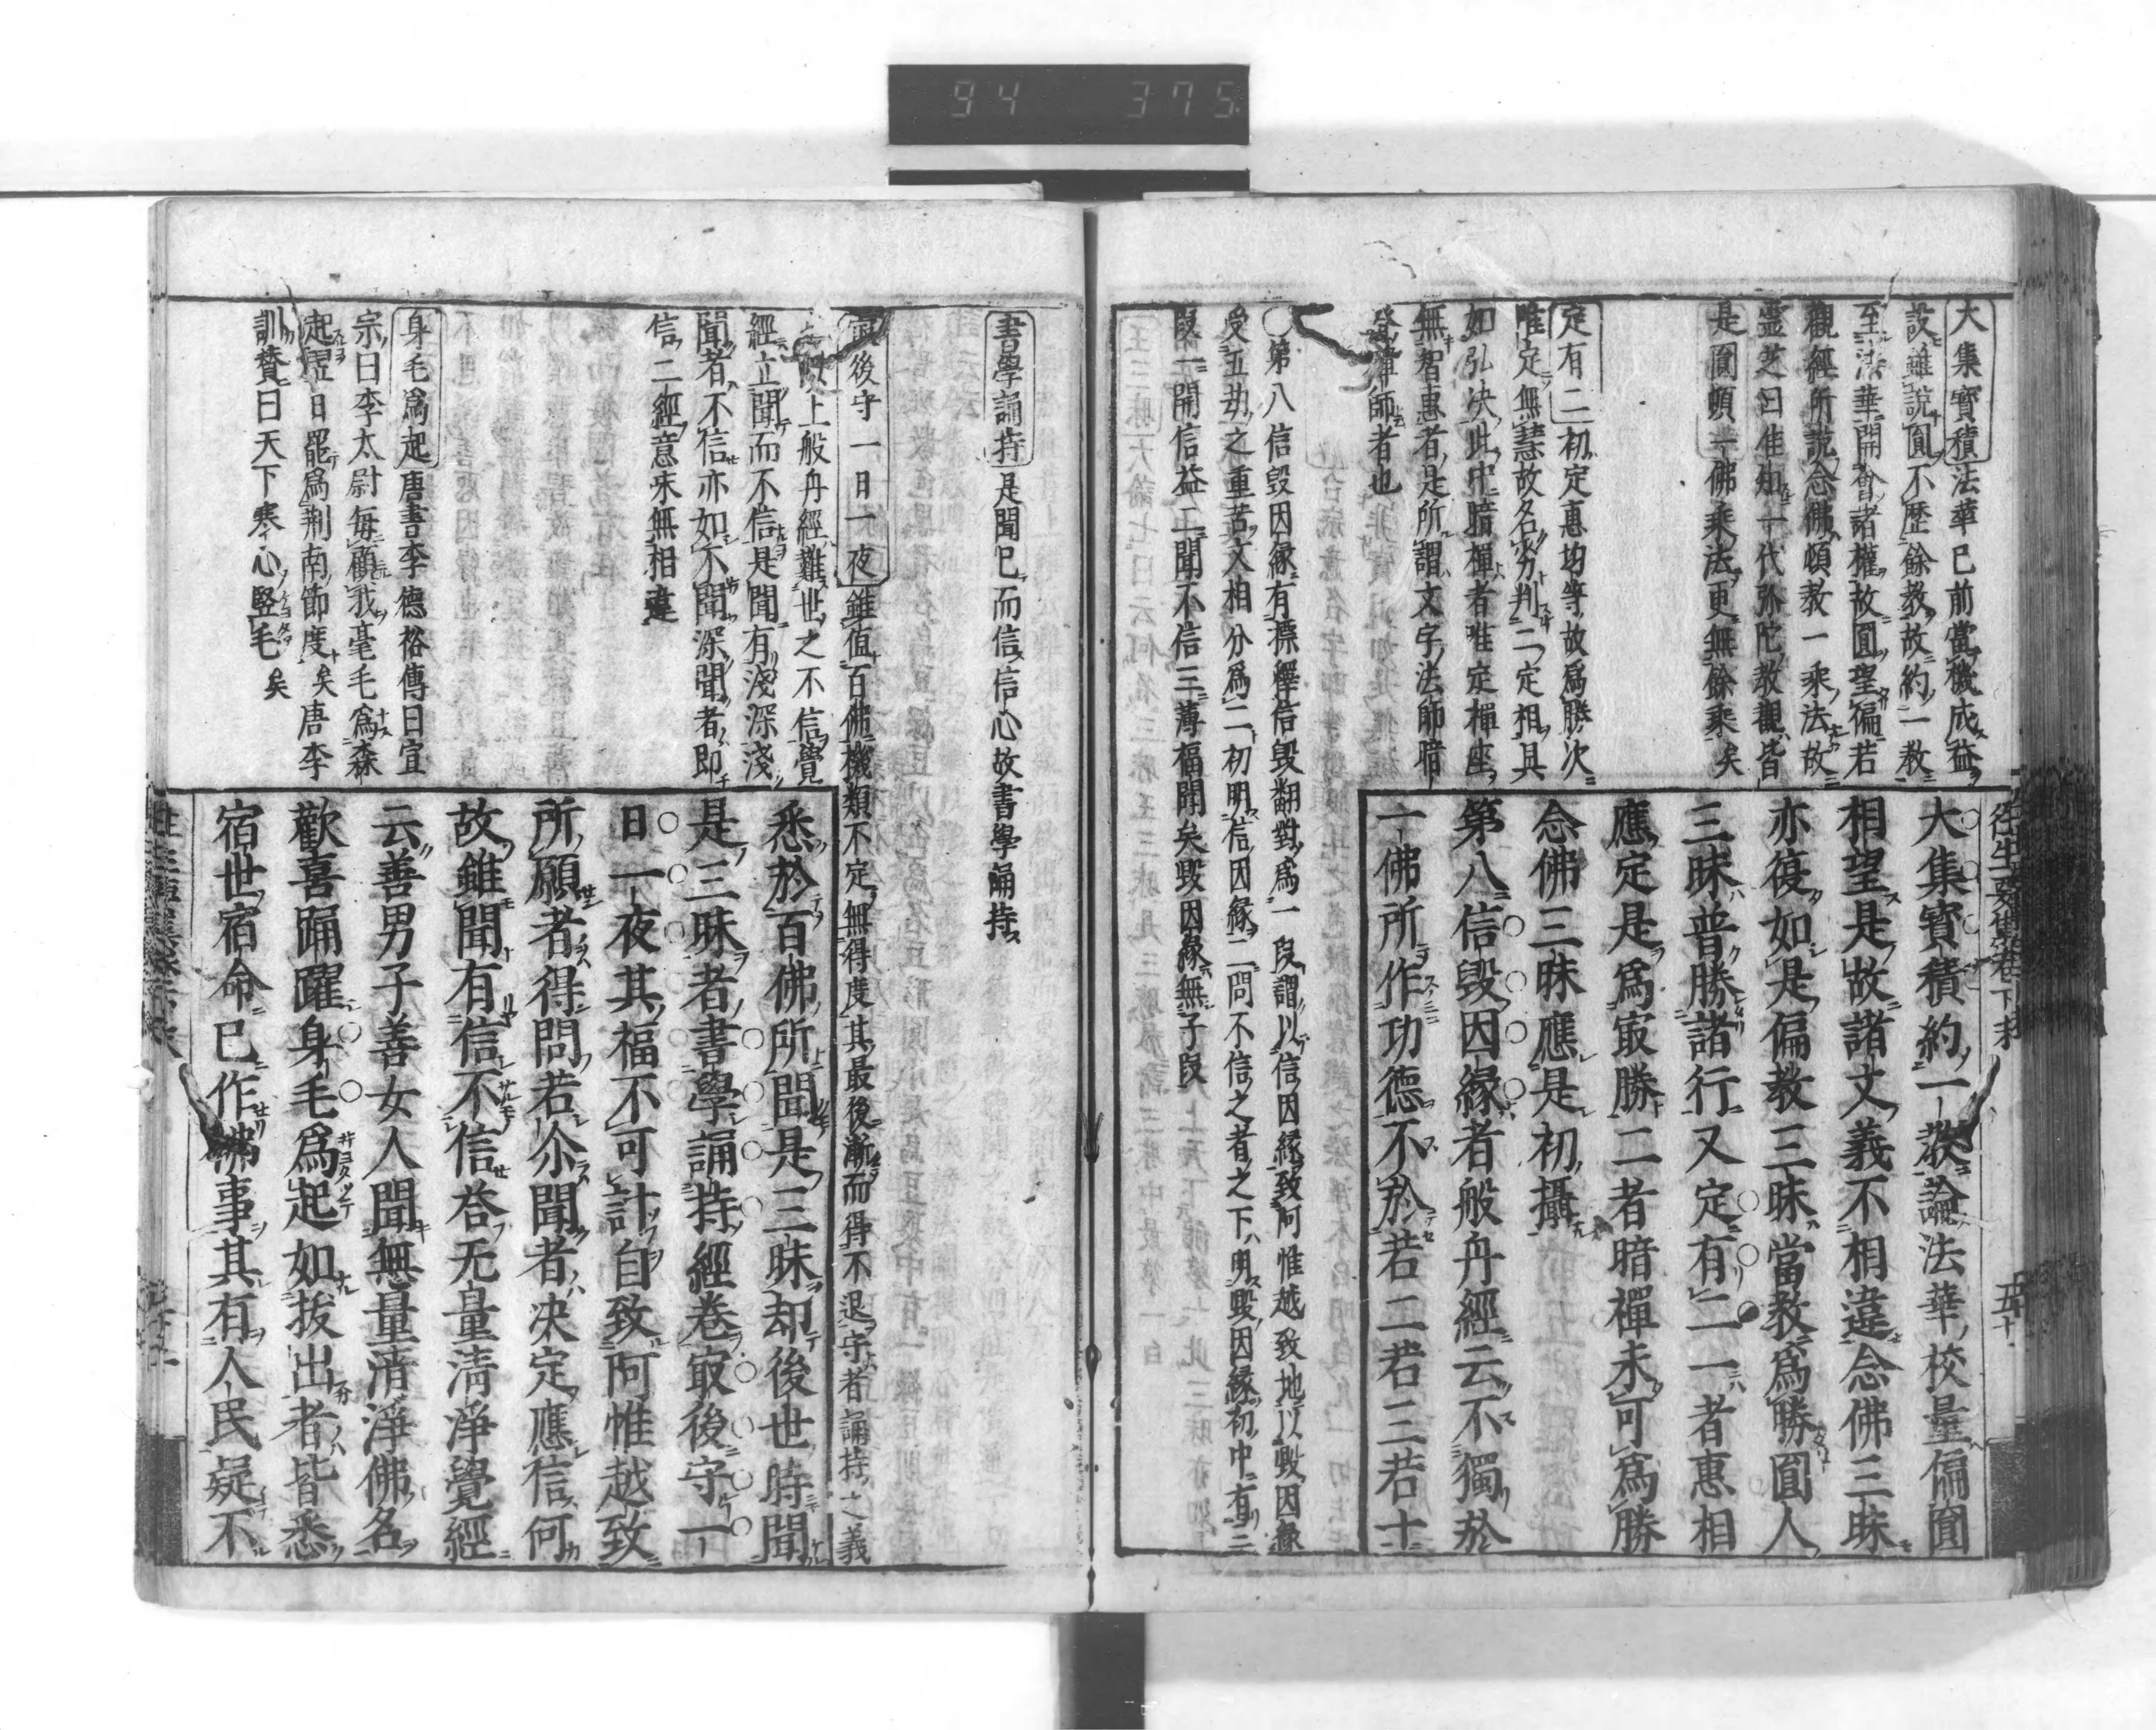 94 375
大集寳積法華已前當機成益
設雖說圓不歷餘教故約一教
至法華開會諸權故圓聖偏若
觀經所說念佛頓教一乘法故
靈芝曰
一代弥陀教觀皆
是圓頓一佛乘法更無餘乘矣
定有二初定惠均等故爲勝次
唯定無慧故名劣判二定相具
如弘决此中暗禪者唯定禪座
無智惠者是所謂文字法師暗
師者也
○第八信毀因縁有標釋信毀翻對爲一段謂以信因縁致阿惟越致地以毀因縁
受五劫之重苦文相分爲二初明信因縁二問不信之者之下明毀因縁初中有三
段一開信益二聞不信三薄福聞矣毀因縁無子段
大集寳積約一教論法華校量偏圓
相望是故諸文義不相違念佛三昧
亦復如是偏教三昧當教爲勝圓人
三昧普勝諸行又定有二一者惠相
應定是爲㝡勝二者暗禪未可爲勝
念佛三昧應是初攝
第八信毀因縁者般舟經云不獨於
一佛所作功德不於若二若三若十
書學誦持是聞已而信信心故書學誦持
㝡後守一日一夜雖值百佛機類不定無得度其最後漸而得不退守者誦持之義
上般舟經難世之不信覺
經立聞而不信是聞有淺深淺
聞者不信亦如不聞深聞者即
信二經意来無相違
身毛爲起唐書李德裕傳曰宣
宗曰李太尉每顧我毫毛爲森
起翌日罷爲荆南節度矣唐李
訓賛曰天下寒心竪毛矣
悉於百佛所聞是三昧却後世時聞
是三昧者書學誦持經卷㝡後守一
日一夜其福不可計自致阿惟越致
所願者得問若尒聞者决定應信何
故雖聞有信不信荅无量清淨覺經
云善男子善女人聞無量清淨佛名
歡喜踊躍身毛爲起如拔出者皆悉
宿世宿命已作佛事其有人民疑不